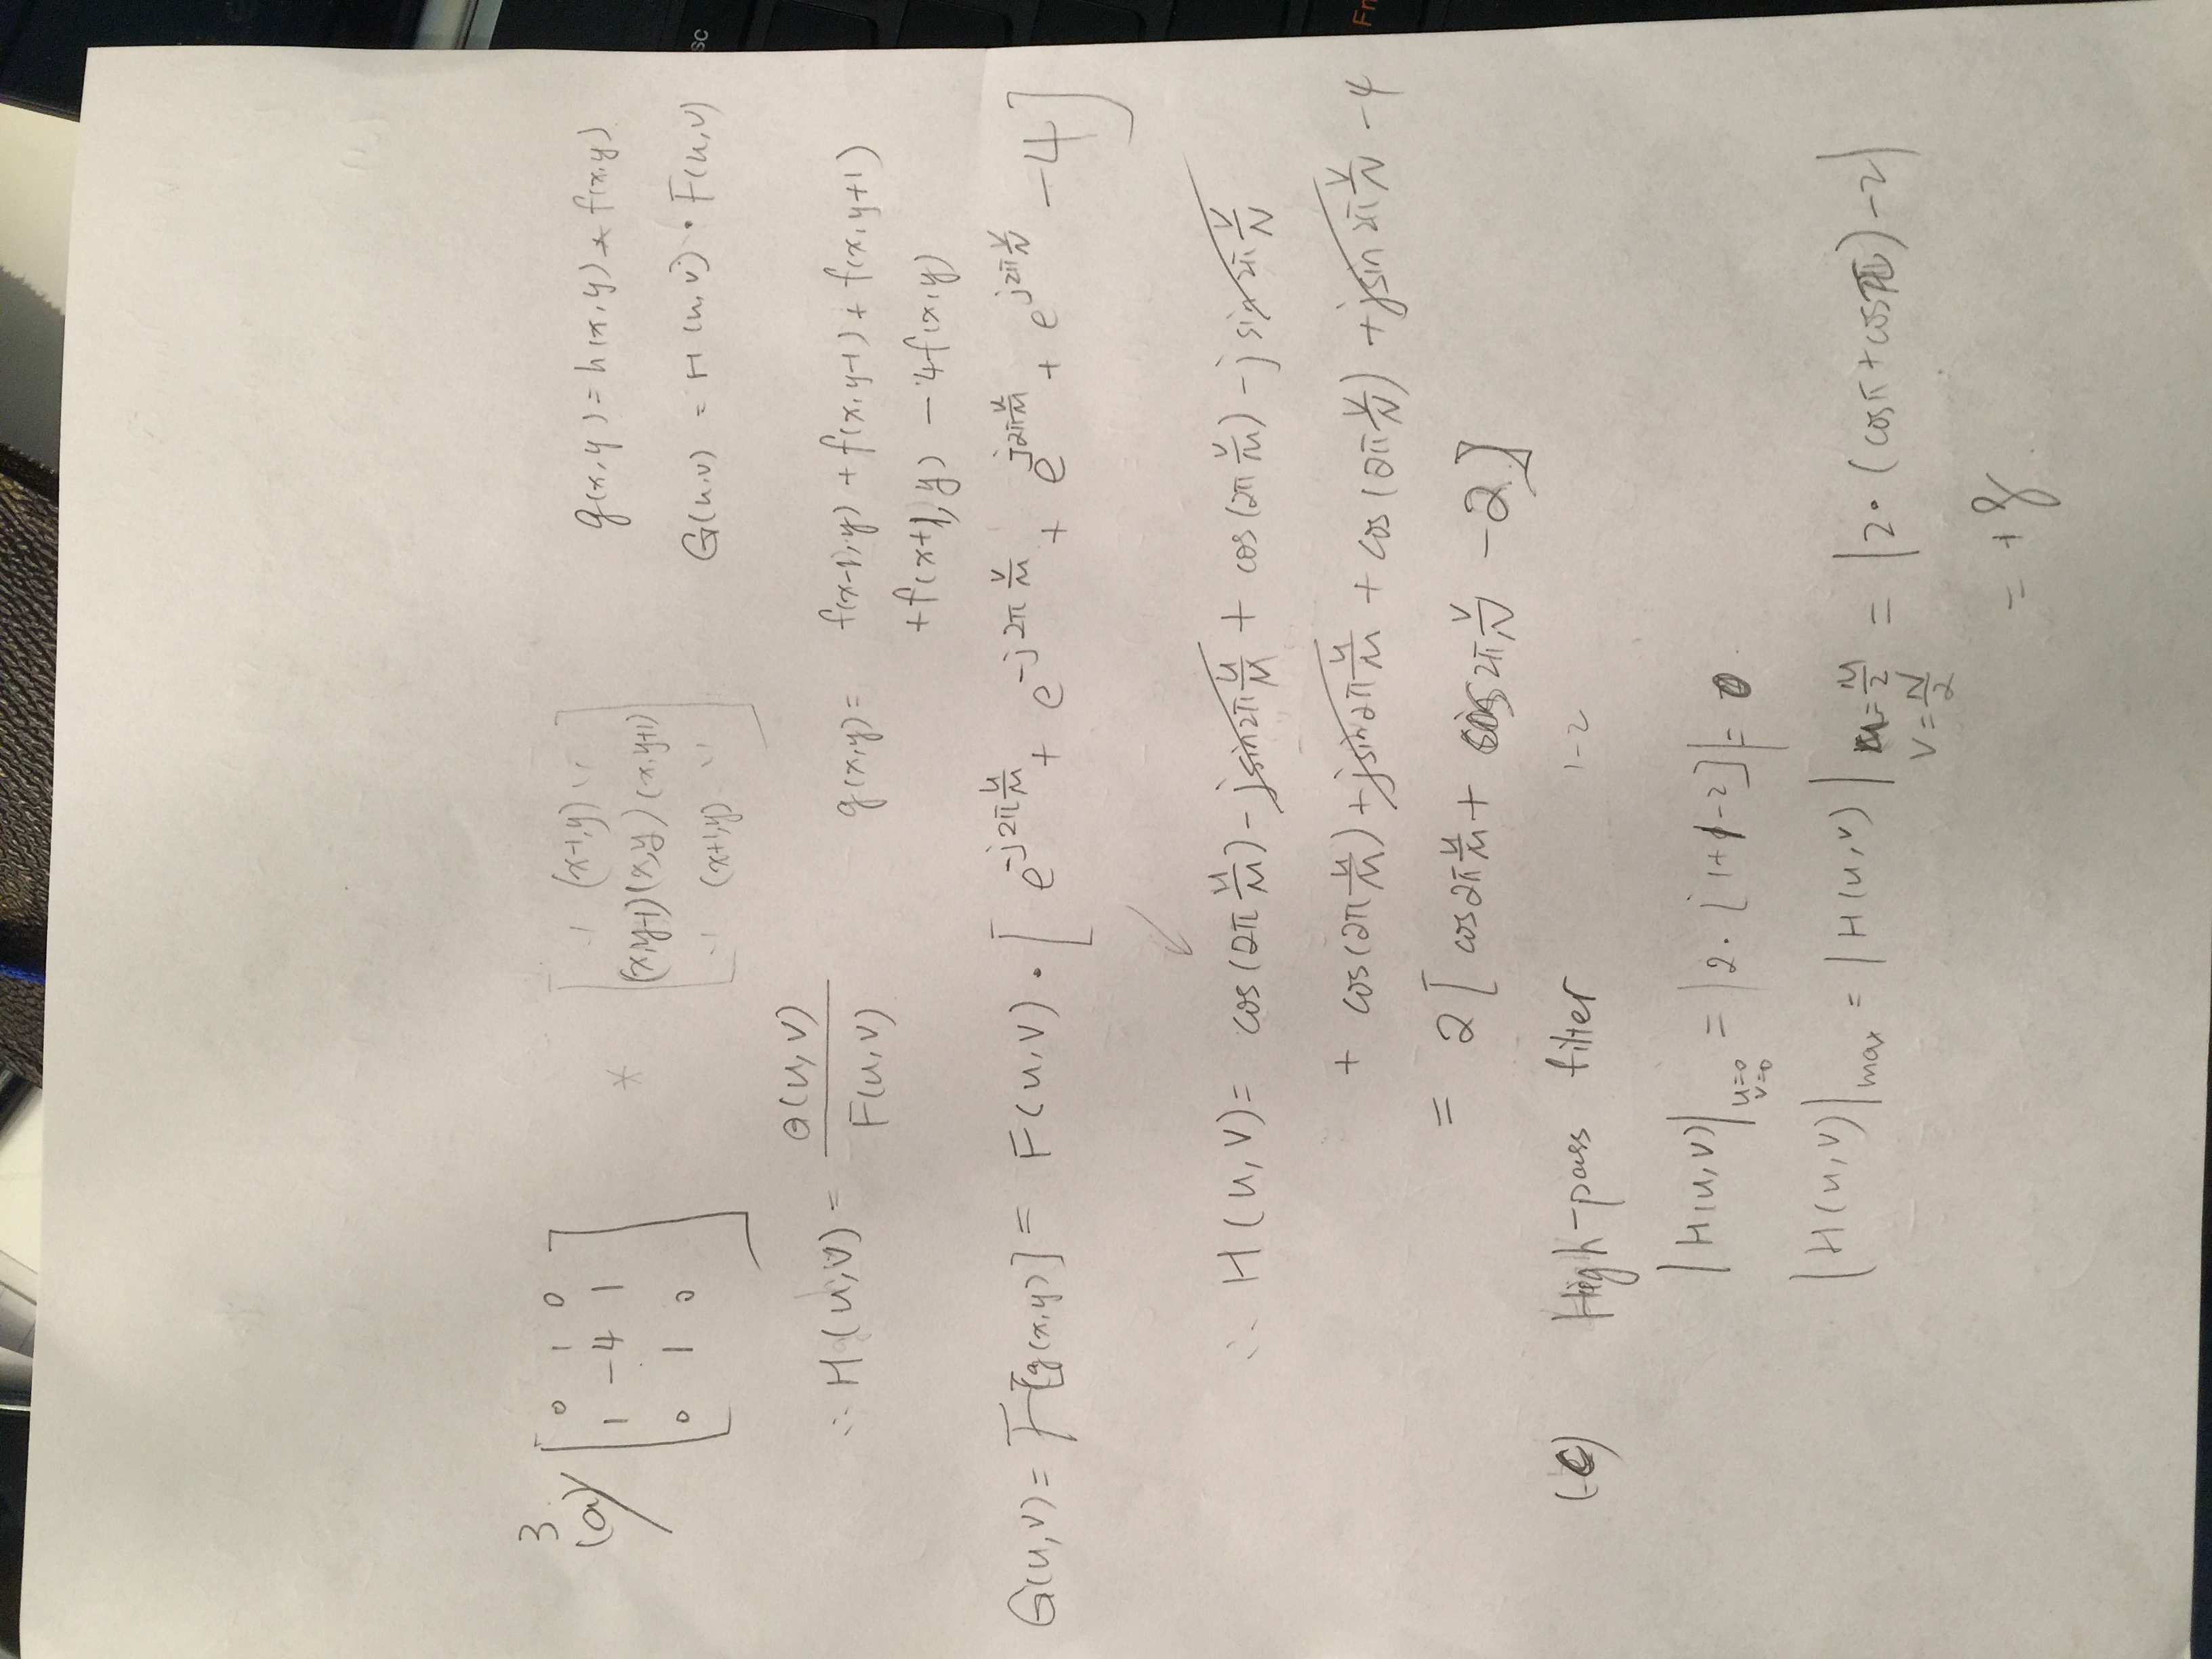 3.
(a)
[ 0 1 0
1 -4 1
0 1 0 ]
*
[ (x-1,y)
(x,y-1) (x,y) (x,y+1)
(x+1,y) ]
g(x,y) = h(x,y) * f(x,y)
G(u,v) = H(u,v) · F(u,v)
∴ H(u,v) = G(u,v) / F(u,v)
g(x,y) = f(x-1,y) + f(x,y-1) + f(x,y+1)
+ f(x+1,y) - 4f(x,y)
G(u,v) = F[g(x,y)] = F(u,v) · [ e^{-j2π u/M} + e^{-j2π v/M} + e^{j2π u/M} + e^{j2π v/N} - 4 ]
∴ H(u,v) = cos(2π u/M) - jsin2π u/M + cos(2π v/M) - jsin2π v/N
+ cos(2π u/M) + jsin2π u/M + cos(2π v/N) + jsin2π v/N - 4
= 2[ cos2π u/M + cos2π v/N - 2 ]
(c) High-pass filter 1-2
|H(u,v)| u=0 v=0 = |2·[1+1-2]| = 0.
|H(u,v)|max = |H(u,v)| u=M/2 v=N/2 = |2·(cosπ+cosπ)-2|
= +8.